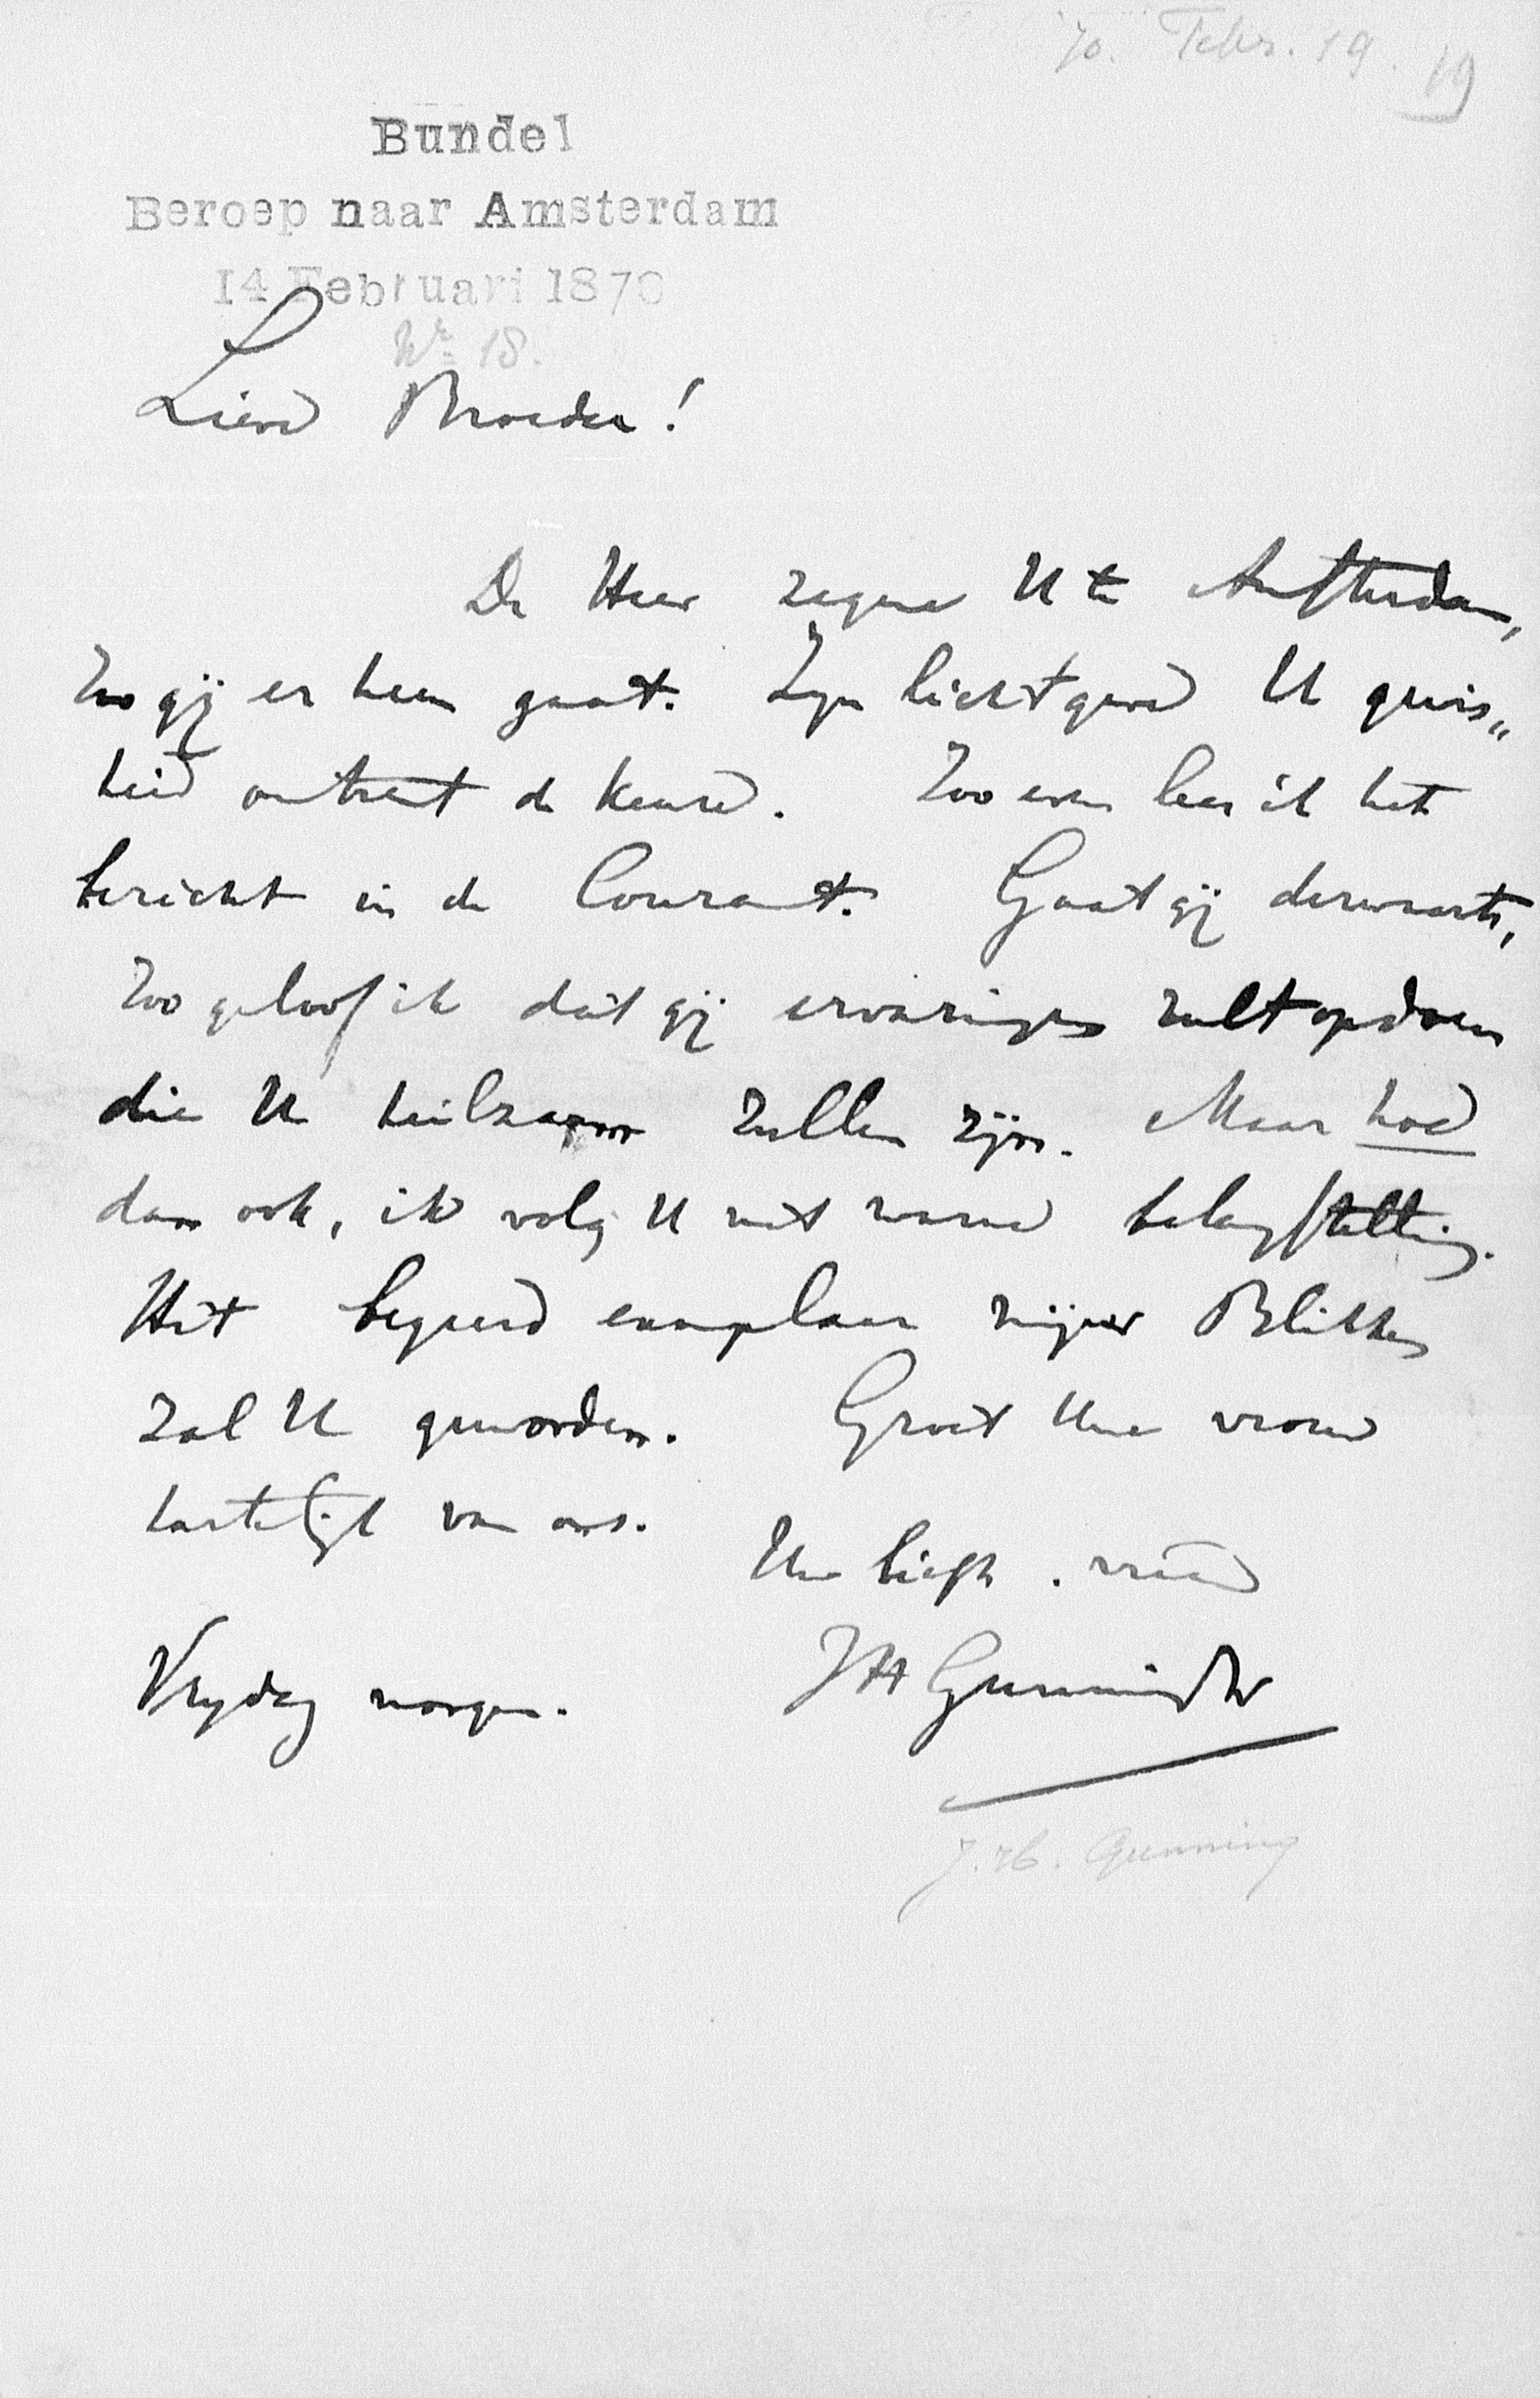 70. Febr. 19. 19
Bundel
Beroep naar Amsterdam
14 Februari 1870
Nr 18.
Lieve Broeder!
De Heer zegene U te Amsterdam,
zoo gij er heen gaat. Zijn licht geve U gewis„
heid omtrent de keuze. Zoo even lees ik het
bericht in de Courant. Gaat gij derwaarts,
zoo geloof ik dat gij ervaringen zult opdoen
die U heilzaam zullen zijn. Maar hoe
dan ook, ik volg U met warme belangstelling.
Het begeerde exemplaar mijner Blikken
zal U geworden. Groet Uwe vrouw
hartelijk van ons.
Uw liefh. vriend
Vrydag morgen. JH Gunning Jr
J.H. Gunning